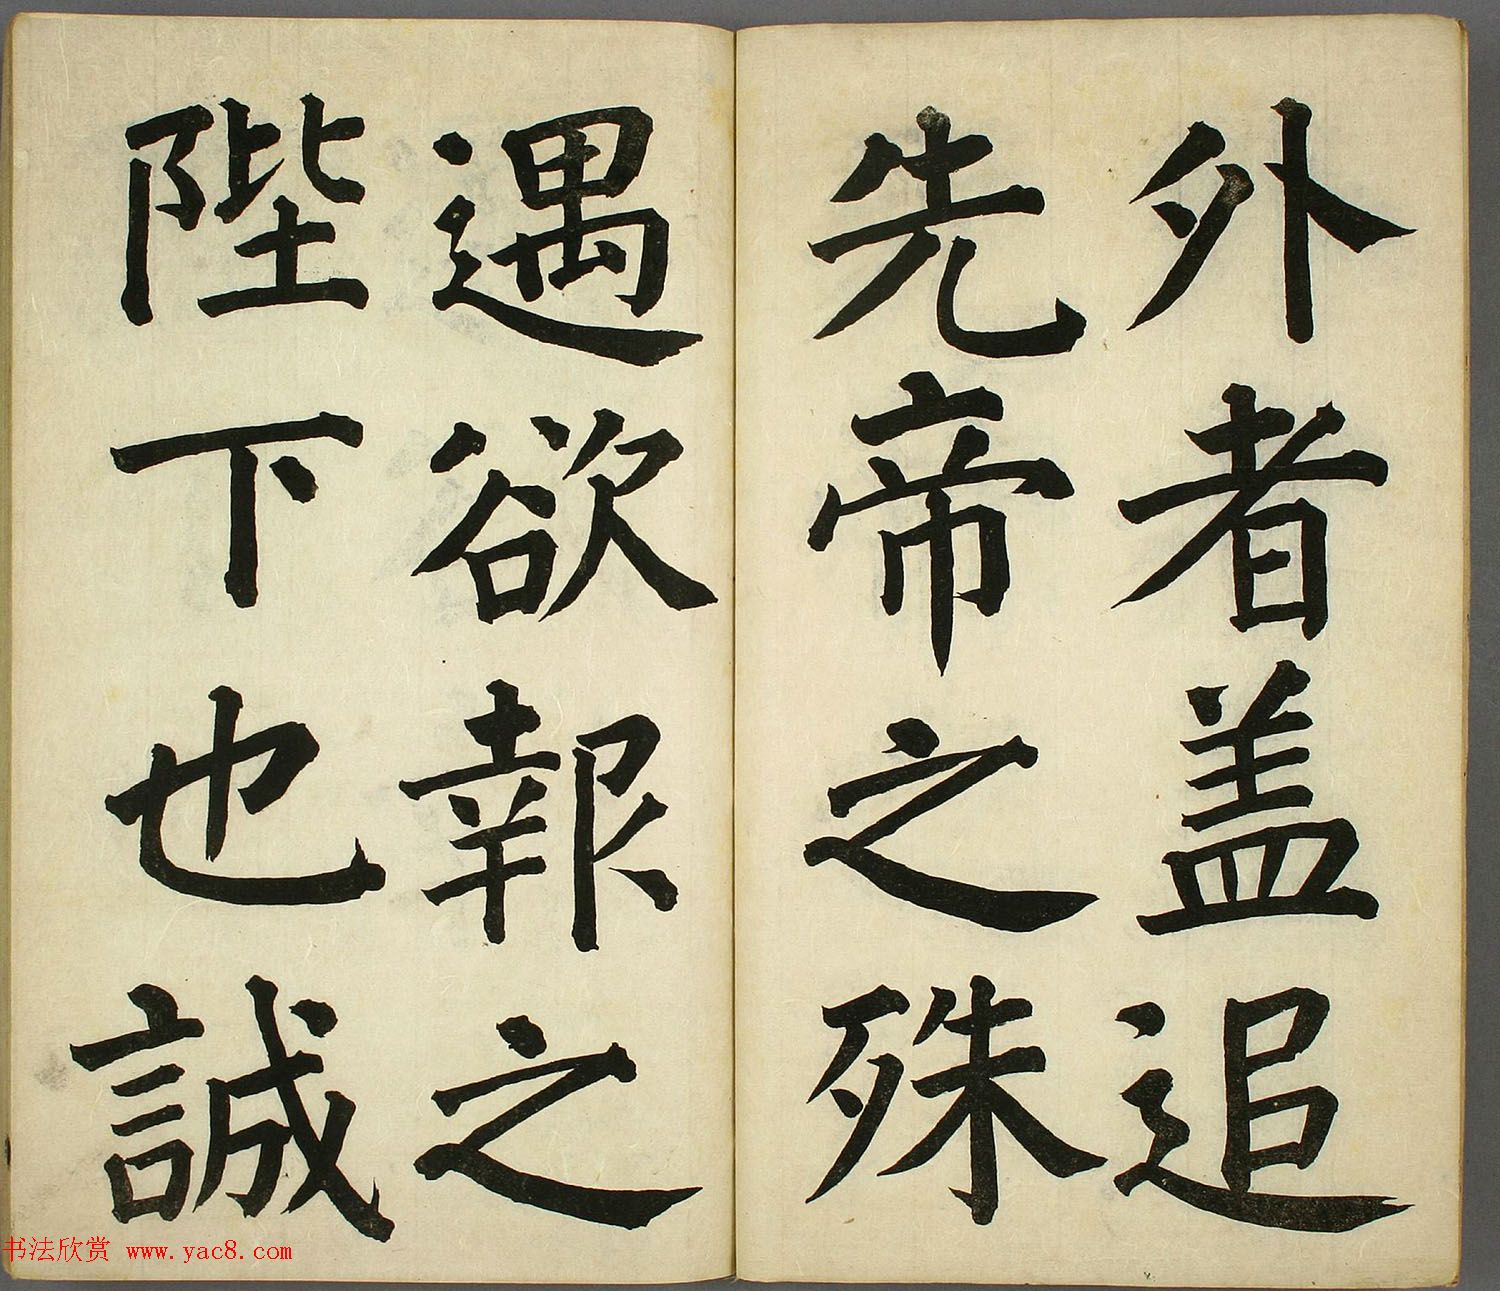 外者盖追
先帝之殊
遇欲報之
陛下也誠
书法欣赏 www.yac8.com